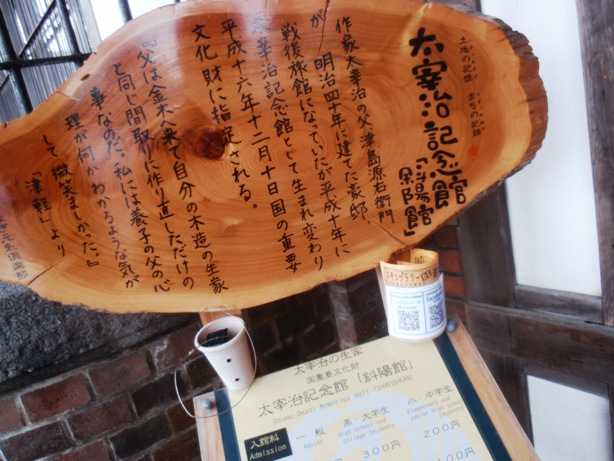 太宰治記念館
「斜陽館」
作家太宰治の父・津島源右衛門
が 明治四十年に建てた豪邸、
戦後旅館になっていたが平成十年に
太宰治記念館として生まれ変わり
平成十六年十二月十日国の重要
文化財に指定される。
『父は金木へ来て自分の木造の生家
と同じ間取りに作り直しただけの
事なのだ。私には養子の父の心
理が何かわかるような気が
して、微笑ましかった。』
「津軽」より
太宰治の生家
国重要文化財
太宰治記念館「斜陽館」
入館料
Admission
一般
Adults
高・大学生
High school and
College Students
小・中学生
300円
200円